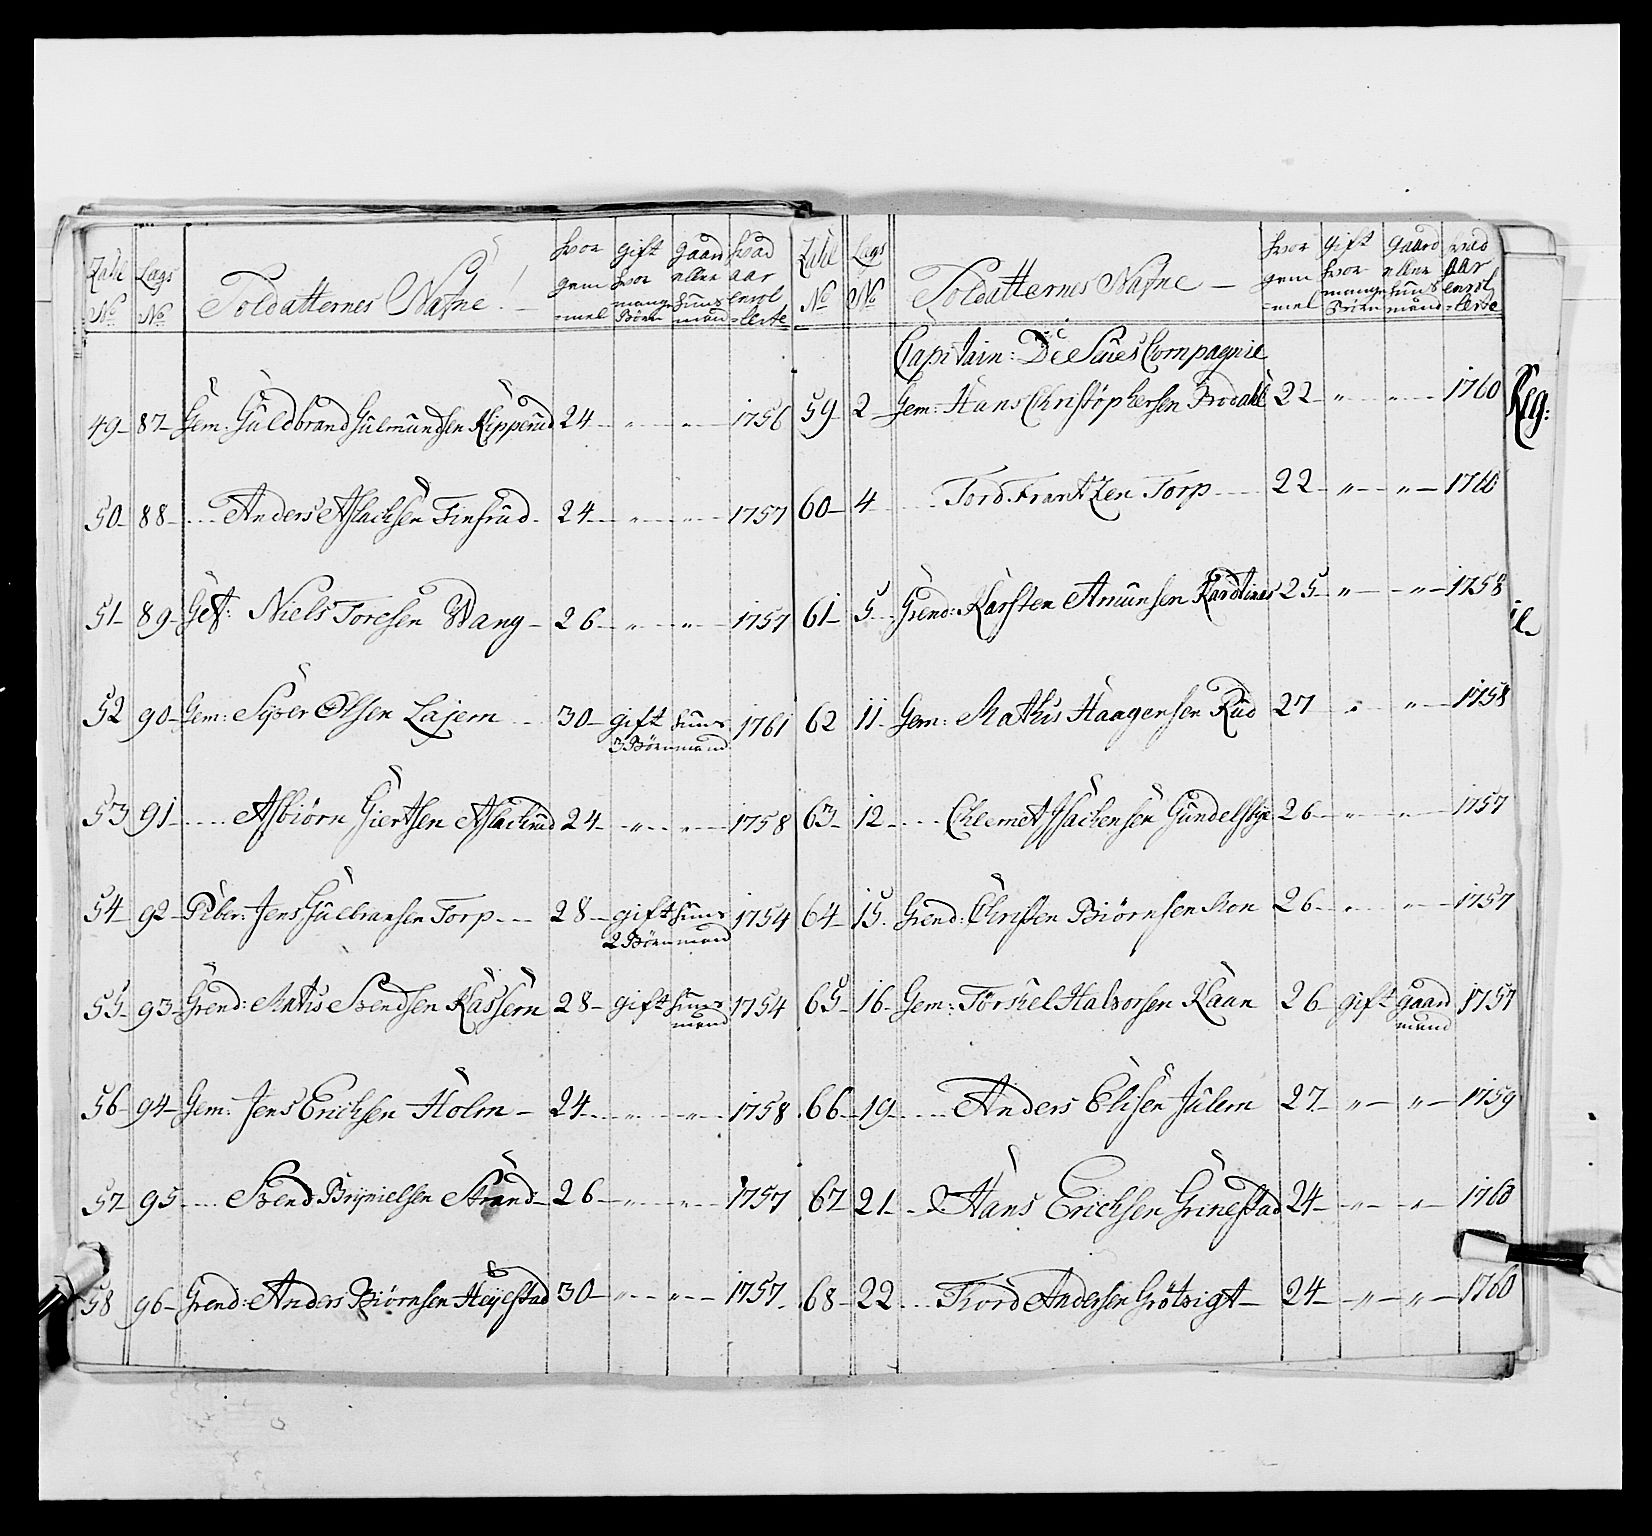 Zahl No Lægs No Soldatternes Nafne hvor gammel gift hvor mange Børn gaard eller huusmand hvad aar enrollerte
49 87 Gem: Guldbrand Gulmundsen Kipperud 24 " " 1756
50 88 Anders Aslachsen Finsrud 24 " " 1757
51 89 Gef: Niels Toresen Wang 26 " " 1757
52 90 Gem: Syver Olsen Lajem 30 gift 3 Børn huusmand 1761
53 91 Asbiörn Giertsen Aslackrud 24 " " 1758
54 92 Piber: Jens Gulbransen Torp 28 gift 2 Børn huusmand 1754
55 93 Grend: Mathis Svendsen Kassern 28 gift huusmand 1754
56 94 Gem: Jens Erichsen Holm 24 " " 1758
57 95 Svend Brynielsen Strand 26 " " 1757
58 96 Grend: Anders Biörnsen Heyestad 30 " " 1757
Zahl No Lægs No Soldatternes Nafne hvor gammel gift hvor mange Børn gaard eller huusmand hvad aar enrollerte
Capitain: De Seues Compagnie
59 2 Gem: Hans Christophersen 22 " " 1760
60 4 Tord Frantzen Torp 22 " " 1760
61 5 Grend: Karsten Amunsen 25 " " 1758
62 11 Gem: Mathis Haagensen Rud 27 " " 1758
63 12 Clemet Isacksen Gundelsbye 26 " " 1757
64 15 Grend: Christen Biörnsen Mon 26 " " 1757
65 16 Gem: Törkel Halvorsen Kaan 26 gift gaardmand 1757
66 19 Anders Elisen Julem 27 " " 1759
67 21 Hans Erichsen Grinestad 24 " " 1760
68 22 Tord Andersen Grötvigt 24 " " 1760
Reg: